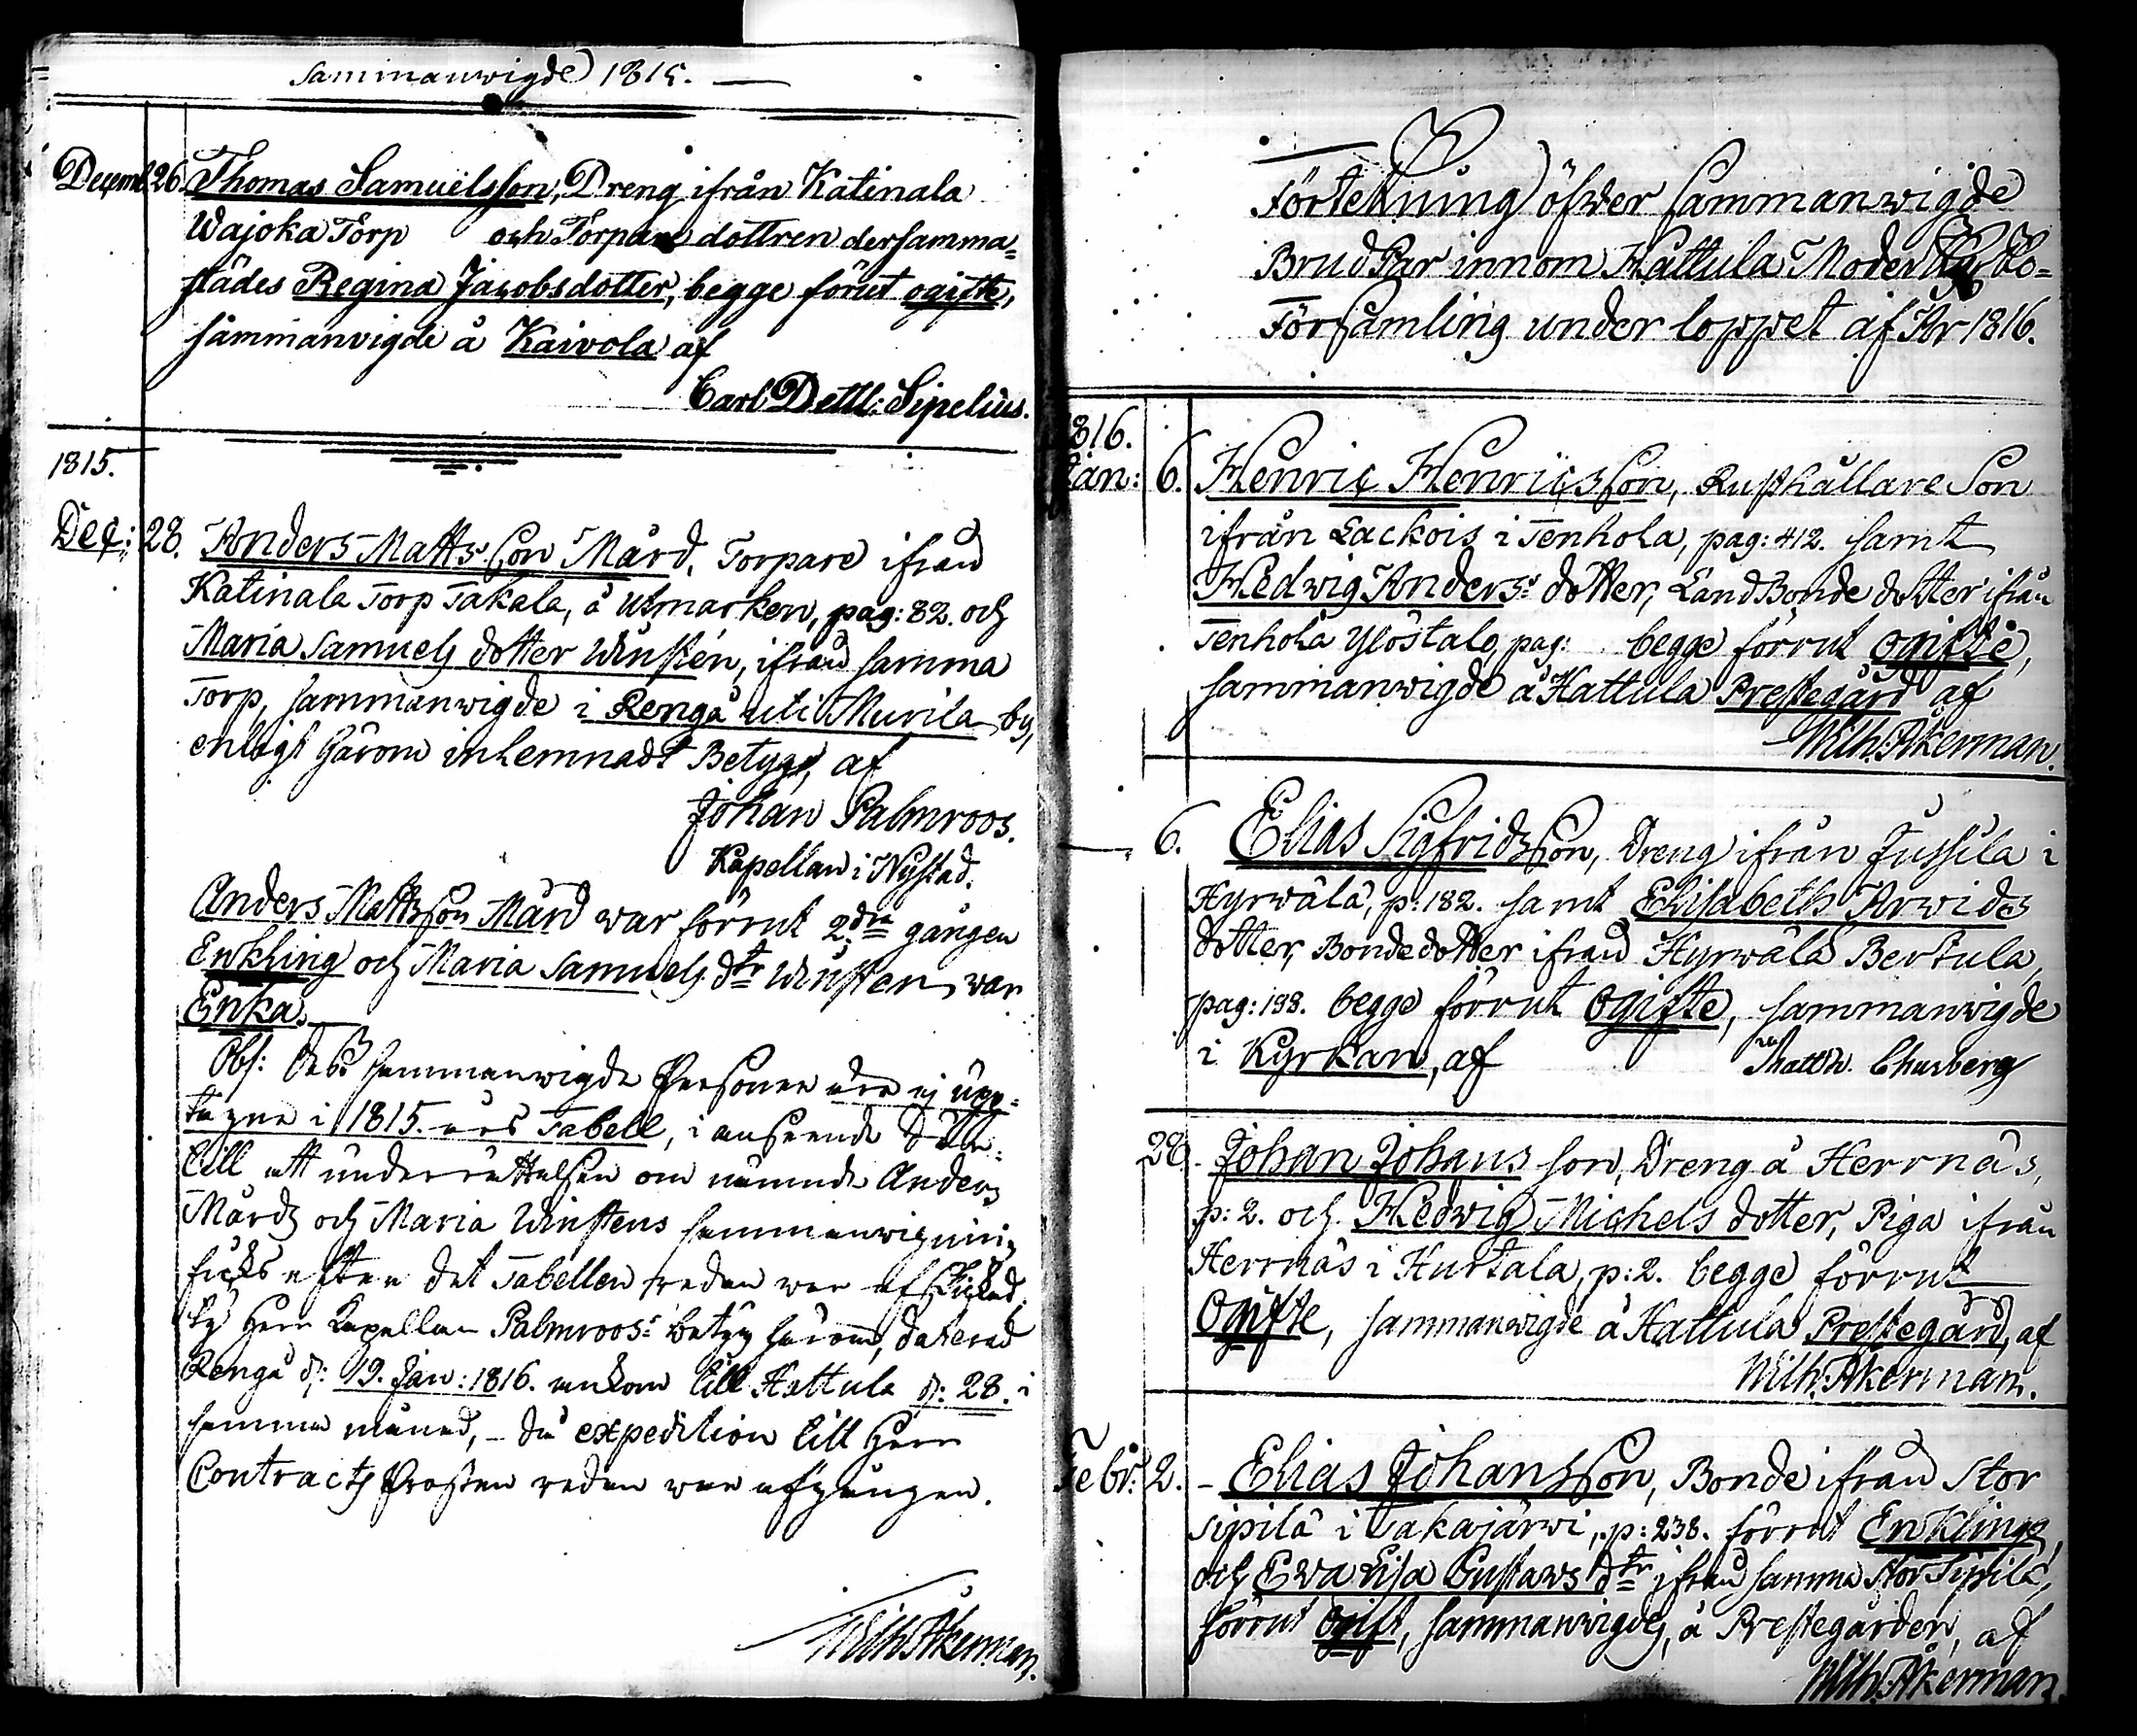 Sammanwigde 1815.
Decemb 26. Thomas Samuelsson, Dreng ifrån Katinala
Wajoka Torp och Torpare dottren dersamma=
städes Regina Jacobsdotter, begge förut ogifte,
sammanvigde å Kaivola af
Carl Dettl: Sipelius.
1815.
Dec: 28. Anders Matts Son Mård, Torpare ifrån
Katinala Torp Takala, å Utmarken, pag: 82. och
Maria Samuels dotter Winsten, ifrån samma
Torp, sammanwigde i Rengå uti Murila by,
enligt härom inlemnadt Betyg, af
Johan Palmroos.
Kapellan i Nystad.
Anders Mattsson Mård war förrut 2dra gången
Enkling och Maria Samuels dtr Winsten war
Enka.
Obs: Desse sammanwigde Personer äro ej upp=
tagne i 1815. års Tabell, i anseende där=
till att underrättelsen om nämnde Anders
Mårds och Maria Winstens sammanwigning
ficks efter det Tabellen redan war afskickad,
ty Herr Kapellan Palmroos's betyg härom, daterad
Rengå d: 19. Jan: 1816. ankom till Hattula d: 28. i
samma månad, – då expedition till Herr
Contracts Prosten redan war afgången.
Wilh. Åkerman.
Förtekning öfwer sammanwigde
Brud Par innom Hattula Moder Kyrko=
Församling under loppet af År 1816.
1816.
Jan: 6. Henric Henricsson, Rusthållare Son
ifrån Lackois i Tenhola, pag: 412. samt
Hedwig Anders: dotter, Land Bonde dotter ifrån
Tenhola Ylöstalo, pag: begge förrut ogifte,
sammanwigde å Hattula Prestegård af
Wilh. Åkerman.
6. Elias Sigfridsson, Dreng ifrån Jussila i
Hyrwälä, p: 182. samt Elisabeth Arwids
dotter, Bondedotter ifrån Hyrwälä Bertula,
pag: 198. begge förrut Ogifte, sammanwigde
i Kyrkan, af Matth. Chusberg
28. Johan Johans son, Dreng å Herrnäs,
p: 2. och Hedwig Michels dotter, Piga ifrån
Herrnäs i Hurtala, p: 2. begge förrut
Ogifte, sammanwigde å Hattula Prestegård, af
Wilh. Åkerman.
Febr: 2. – Elias Johansson, Bonde ifrån Stor
Sipilä i Takajärwi, p: 238. förrut Enkling,
och Ewa Lisa Gustaws dtr ifrån samma Stor Sipilä,
förrut Ogift, sammanwigde, å Prestegården, af
Wilh. Åkerman.